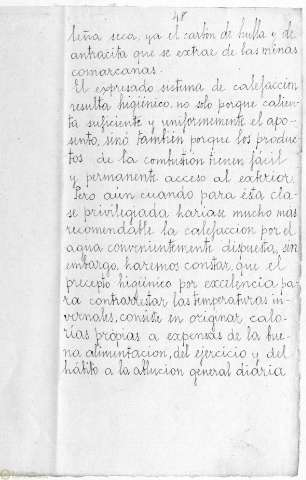 48
leña seca, ya el carbón de hulla y de
antracita que se extrae de las minas
comarcanas.
El expresado sistema de calefacción
resulta higiénico, no solo porque calien-
ta suficiente y uniformemente el apo-
sento, sinó también porque los produc-
tos de la combustión tienen fácil
y permanente acceso al exterior.
Pero aún cuando para ésta cla-
se privilegiada hariase mucho más
recomendable la calefacción por el
agua convenientemente dispuesta, sin
embargo, haremos constar, que el
precepto higiénico por excelencia pa-
ra contrarrestar las temperaturas in-
vernales, consiste en originar calo-
rías própias a expensas de la bue-
na alimentacion, del ejercicio y del
hábito a la ablucion general diária